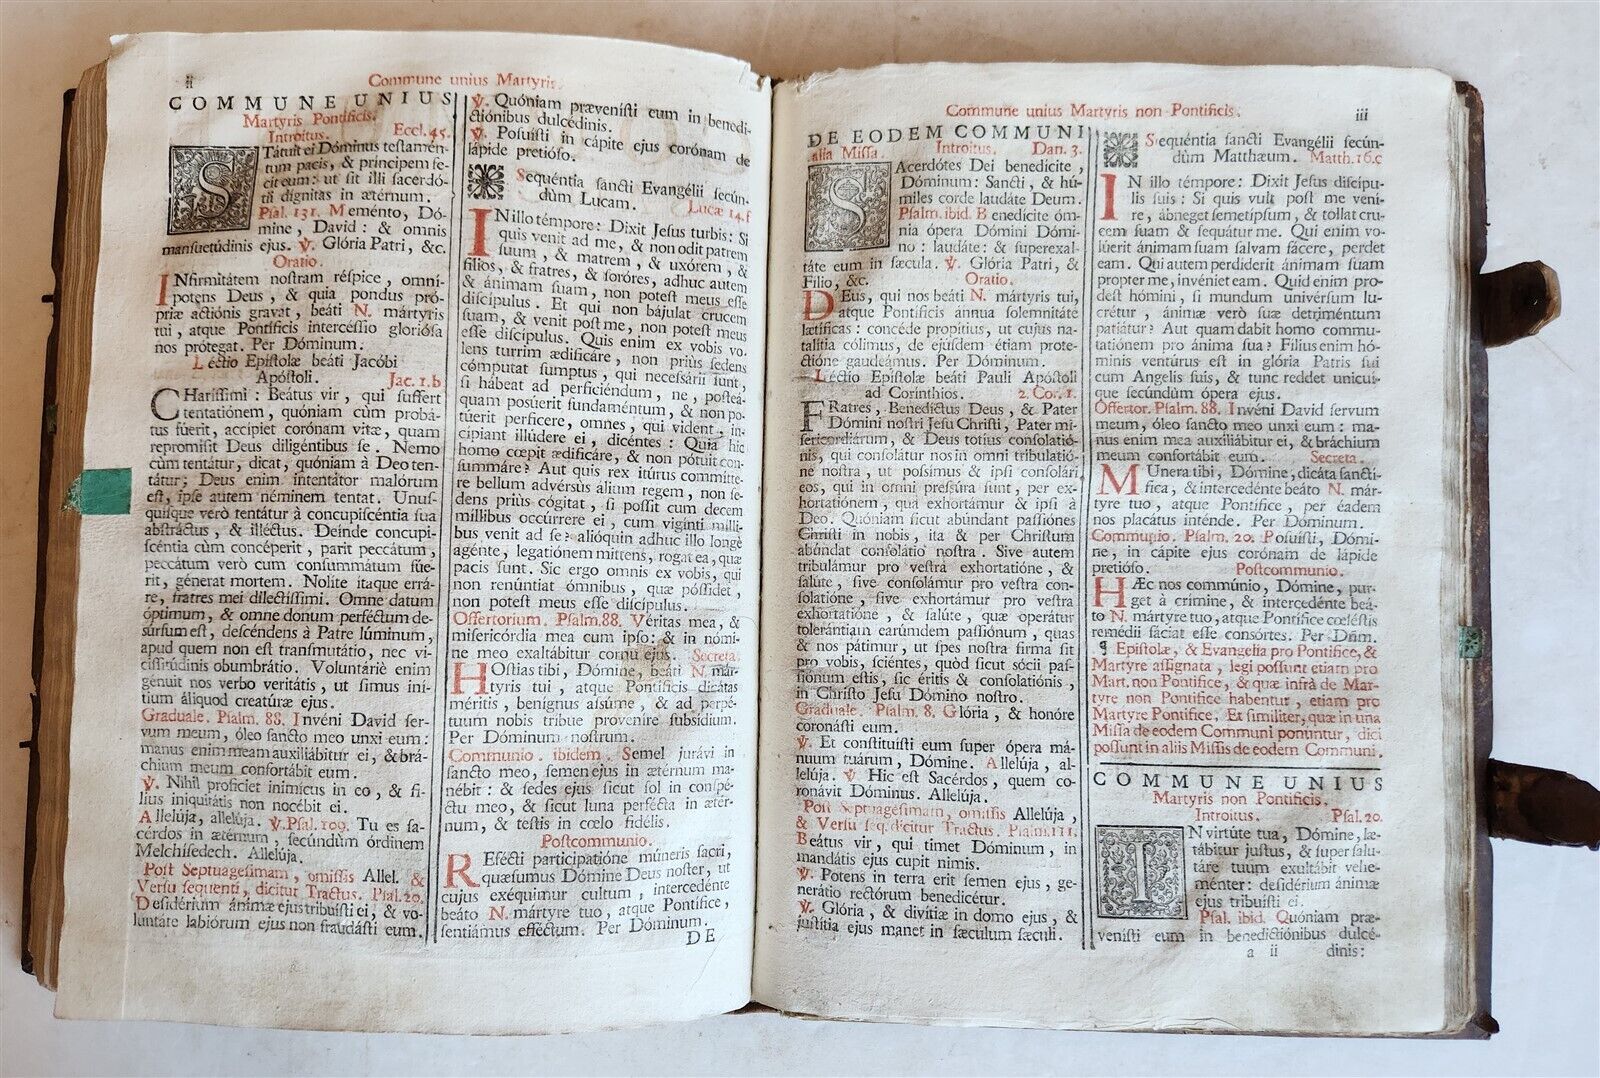 ii
Commune unius Martyris.
COMMUNE UNIUS
Martyris Pontificis.
Introitus. Eccl. 45.
STátuit ei Dóminus testamén-
tum pacis, & príncipem fe-
cit eum: ut sit illi sacerdó-
tii dignitas in ætérnum.
Psal. 131. Meménto, Dó-
mine, David: & omnis
mansuetúdinis ejus. ℣. Glória Patri, &c.
Oratio.
INfirmitátem nostram réspice, omní-
potens Deus, & quia pondus pró-
priæ actiónis gravat, beáti N. mártyris
tui, atque Pontíficis intercéssio gloriósa
nos prótegat. Per Dóminum.
Léctio Epístolæ beáti Jacóbi
Apóstoli. Jac. 1. b
CHaríssimi: Beátus vir, qui suffert
tentatiónem, quóniam cùm probá-
tus fúerit, accípiet corónam vitæ, quam
repromísit Deus diligéntibus se. Nemo
cùm tentátur, dicat, quóniam à Deo ten-
tátur; Deus enim intentátor malórum
est, ipse autem néminem tentat. Unus-
quísque verò tentátur à concupiscéntia sua
abstráctus, & illéctus. Deínde concupi-
scéntia cùm concéperit, parit peccátum,
peccátum verò cum consummátum fúe-
rit, génerat mortem. Nolíte ítaque errá-
re, fratres mei dilectíssimi. Omne datum
óptimum, & omne donum perféctum de-
súrsum est, descéndens à Patre lúminum,
apud quem non est transmutátio, nec vi-
cissitúdinis obumbrátio. Voluntáriè enim
génuit nos verbo veritátis, ut simus iní-
tium áliquod creatúræ ejus.
Graduale. Psalm. 88. Invéni David ser-
vum meum, óleo sancto meo unxi eum:
manus enim mea auxiliábitur ei, & brá-
chium meum confortábit eum.
℣. Nihil profíciet inimícus in eo, & fí-
lius iniquitátis non nocébit ei.
Allelúja, allelúja. ℣. Psal. 109. Tu es sa-
cérdos in ætérnum, secúndùm órdinem
Melchísedech. Allelúja.
Post Septuagesimam, omissis Allel. &
Versu sequenti, dicitur Tractus. Psal. 20.
Desidérium ánimæ ejus tribuísti ei, & vo-
luntáte labiórum ejus non fraudásti eum.
℣. Quóniam prævenísti eum in benedi-
ctiónibus dulcédinis.
℣. Posuísti in cápite ejus corónam de
lápide pretióso.
Sequéntia sancti Evangélii secún-
dùm Lucam. Lucæ 14. f
IN illo témpore: Dixit Jesus turbis: Si
quis venit ad me, & non odit patrem
suum, & matrem, & uxórem, &
fílios, & fratres, & soróres, adhuc autem
& ánimam suam, non potest meus esse
discípulus. Et qui non bájulat crucem
suam, & venit post me, non potest meus
esse discípulus. Quis enim ex vobis vo-
lens turrim ædificáre, non priùs sedens
cómputat sumptus, qui necessárii sunt,
si hábeat ad perficiéndum, ne, posteá-
quam posúerit fundaméntum, & non po-
túerit perfícere, omnes, qui vident, in-
cípiant illúdere ei, dicéntes: Quia hic
homo cœpit ædificáre, & non pótuit con-
summáre? Aut quis rex itúrus commítte-
re bellum advérsùs álium regem, non se-
dens priùs cógitat, si possit cum decem
míllibus occúrrere ei, cum vigínti mílli-
bus venit ad se? alióquin adhuc illo longè
agénte, legatiónem mittens, rogat ea, quæ
pacis sunt. Sic ergo omnis ex vobis, qui
non renúntiat ómnibus, quæ póssidet,
non potest meus esse discípulus.
Offertorium. Psalm. 88. Véritas mea, &
misericórdia mea cum ipso: & in nómi-
ne meo exaltábitur cornu ejus. Secreta.
HOstias tibi, Dómine, beáti N. már-
tyris tui, atque Pontíficis dicátas
méritis, benígnus assúme, & ad perpé-
tuum nobis tríbue proveníre subsídium.
Per Dóminum nostrum.
Communio. ibidem. Semel jurávi in
sancto meo, semen ejus in ætérnum ma-
nébit: & sedes ejus sicut sol in conspé-
ctu meo, & sicut luna perfécta in ætér-
num, & testis in cœlo fidélis.
Postcommunio.
REfécti participatióne múneris sacri,
quæsumus Dómine Deus noster, ut
cujus exéquimur cultum, intercedénte
beáto N. mártyre tuo, atque Pontífice,
sentiámus efféctum. Per Dóminum.
DE
Commune unius Martyris non Pontificis.
iii
DE EODEM COMMUNI
alia Missa. Introitus. Dan. 3.
SAcerdótes Dei benedícite,
Dóminum: Sancti, & hú-
miles corde laudáte Deum.
Psalm. ibid. Benedícite óm-
nia ópera Dómini Dómi-
no: laudáte: & superexal-
táte eum in sæcula. ℣. Glória Patri, &
Fílio, &c. Oratio.
DEus, qui nos beáti N. mártyris tui,
atque Pontíficis ánnua solemnitáte
lætíficas: concéde propítius, ut cujus na-
talítia cólimus, de ejúsdem étiam prote-
ctióne gaudeámus. Per Dóminum.
Léctio Epístolæ beáti Pauli Apóstoli
ad Corínthios. 2. Cor. 1.
FRatres, Benedíctus Deus, & Pater
Dómini nostri Jesu Christi, Pater mi-
sericordiárum, & Deus totíus consolatió-
nis, qui consolátur nos in omni tribulatió-
ne nostra, ut possímus & ipsi consolári
eos, qui in omni pressúra sunt, per ex-
hortatiónem, qua exhortámur & ipsi à
Deo. Quóniam sicut abúndant passiónes
Christi in nobis, ita & per Christum
abúndat consolátio nostra. Sive autem
tribulámur pro vestra exhortatióne, &
salúte, sive consolámur pro vestra con-
solatióne, sive exhortámur pro vestra
exhortatióne, & salúte, quæ operátur
tolerántiam earúmdem passiónum, quas
& nos pátimur, ut spes nostra firma sit
pro vobis, sciéntes, quòd sicut sócii pas-
siónum estis, sic éritis & consolatiónis,
in Christo Jesu Dómino nostro.
Graduale. Psalm. 8. Glória, & honóre
coronásti eum.
℣. Et constituísti eum super ópera má-
nuum tuárum, Dómine. Allelúja, al-
lelúja. ℣ Hic est Sacérdos, quem co-
ronávit Dóminus. Allelúja.
Post Septuagesimam, omissis Allelúja,
& Versu seq. dicitur Tractus. Psalm. 111.
Beátus vir, qui timet Dóminum, in
mandátis ejus cupit nimis.
℣. Potens in terra erit semen ejus, ge-
nerátio rectórum benedicétur.
℣. Glória, & divítiæ in domo ejus, &
justítia ejus manet in sæculum sæculi.
Sequéntia sancti Evangélii secún-
dùm Matthæum. Matth. 16. c
IN illo témpore: Dixit Jesus discípu-
lis suis: Si quis vult post me vení-
re, ábneget semetípsum, & tollat cru-
cem suam & sequátur me. Qui enim vo-
lúerit ánimam suam salvam fácere, perdet
eam. Qui autem perdíderit ánimam suam
propter me, invéniet eam. Quid enim pro-
dest hómini, si mundum univérsum lu-
crétur, ánimæ verò suæ detriméntum
patiátur? Aut quam dabit homo commu-
tatiónem pro ánima sua? Fílius enim hó-
minis ventúrus est in glória Patris sui
cum Angelis suis, & tunc reddet unicui-
que secúndùm ópera ejus.
Offertor. Psalm. 88. Invéni David servum
meum, óleo sancto meo unxi eum: ma-
nus enim mea auxiliábitur ei, & bráchium
meum confortábit eum. Secreta.
MUnera tibi, Dómine, dicáta sanctí-
fica, & intercedénte beáto N. már-
tyre tuo, atque Pontífice, per éadem
nos placátus inténde. Per Dóminum.
Communio. Psalm. 20. Posuísti, Dómi-
ne, in cápite ejus corónam de lápide
pretióso. Postcommunio.
HÆc nos commúnio, Dómine, pur-
get à crímine, & intercedénte beá-
to N. mártyre tuo, atque Pontífice cœléstis
remédii fáciat esse consórtes. Per Dñm.
¶ Epistolæ, & Evangelia pro Pontifice, &
Martyre assignata, legi possunt etiam pro
Mart. non Pontifice, & quæ infrà de Mar-
tyre non Pontifice habentur, etiam pro
Martyre Pontifice. Et similiter, quæ in una
Missa de eodem Communi ponuntur, dici
possunt in aliis Missis de eodem Communi.
COMMUNE UNIUS
Martyris non Pontificis.
Introitus. Psal. 20.
IN virtúte tua, Dómine, læ-
tábitur justus, & super salu-
táre tuum exultábit vehe-
ménter: desidérium ánimæ
ejus tribuísti ei.
Psal. ibid. Quóniam præ-
venísti eum in benedictiónibus dulcé-
a ii dinis: